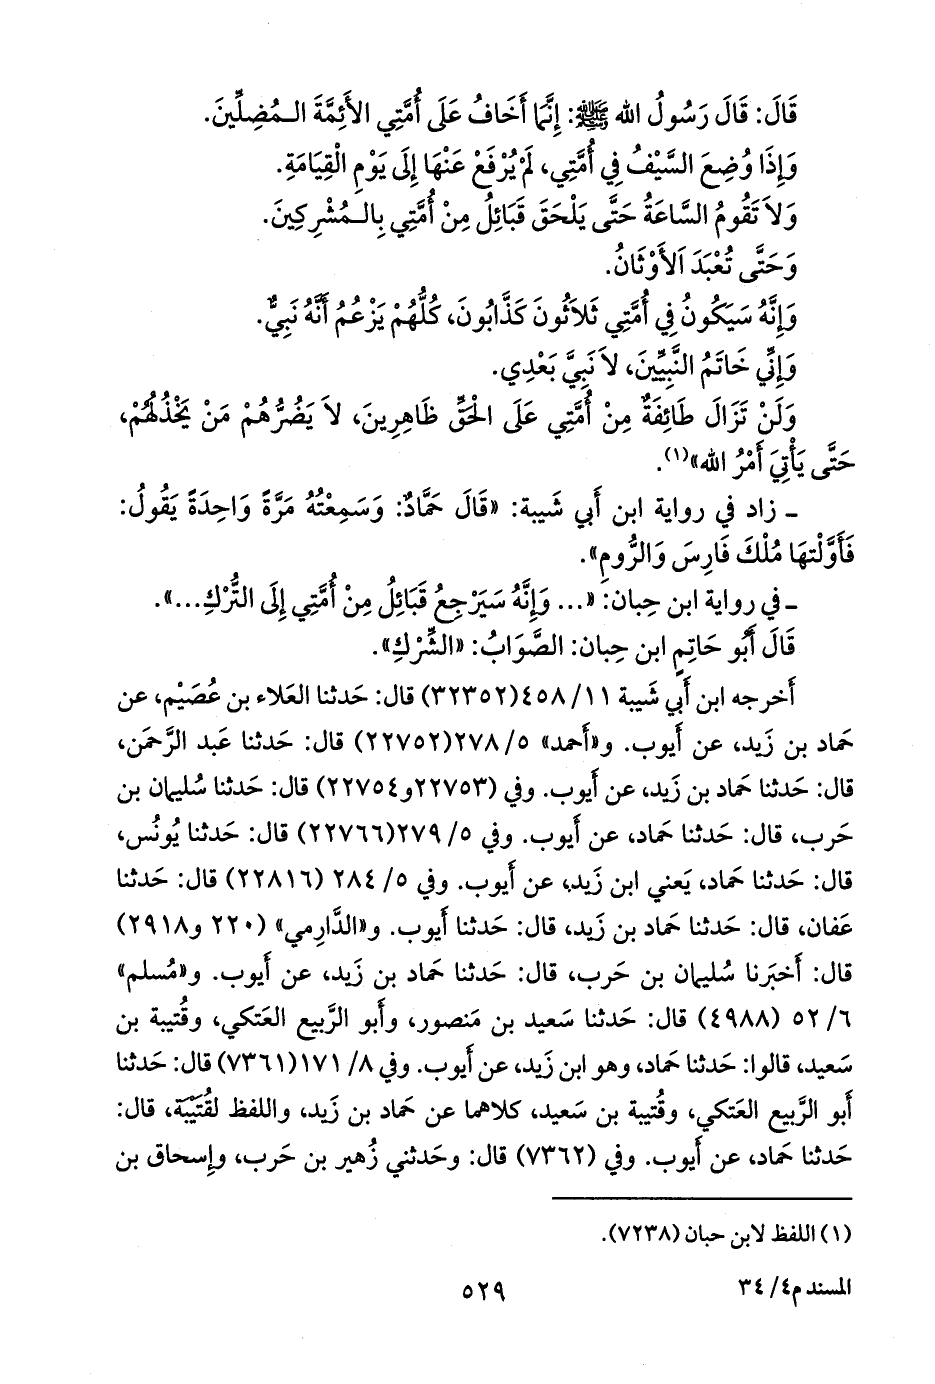 قَالَ: قَالَ رَسُولُ الله ﷺ: إِنَّمَا أَخَافُ عَلَى أُمَّتِي الأَئِمَّةَ الـمُضِلِّينَ.
وَإِذَا وُضِعَ السَّيْفُ فِي أُمَّتِي، لَمْ يُرْفَعْ عَنْهَا إِلَى يَوْمِ الْقِيَامَةِ.
وَلاَ تَقُومُ السَّاعَةُ حَتَّى يَلْحَقَ قَبَائِلُ مِنْ أُمَّتِي بِالـمُشْرِكِينَ.
وَحَتَّى تُعْبَدَ الأَوْثَانُ.
وَإِنَّهُ سَيَكُونُ فِي أُمَّتِي ثَلاَثُونَ كَذَّابُونَ، كُلُّهُمْ يَزْعُمُ أَنَّهُ نَبِيٌّ.
وَإِنِّي خَاتَمُ النَّبِيِّينَ، لاَ نَبِيَّ بَعْدِي.
وَلَنْ تَزَالَ طَائِفَةٌ مِنْ أُمَّتِي عَلَى الحَقِّ ظَاهِرِينَ، لاَ يَضُرُّهُمْ مَنْ يَخْذُلُهُمْ،
حَتَّى يَأْتِيَ أَمْرُ الله»(١).
ـ زاد في رواية ابن أَبي شَيبة: «قَالَ حَمَّادٌ: وَسَمِعْتُهُ مَرَّةً وَاحِدَةً يَقُولُ:
فَأَوَّلْتهَا مُلْكَ فَارِسَ وَالرُّومِ».
ـ في رواية ابن حِبان: «... وَإِنَّهُ سَيَرْجِعُ قَبَائِلُ مِنْ أُمَّتِي إِلَى التُّرْكِ...».
قَالَ أَبُو حَاتِمٍ ابن حِبان: الصَّوَابُ: «الشِّرْكِ».
أَخرجه ابن أَبي شَيبة ١١/ ٤٥٨(٣٢٣٥٢) قال: حَدثنا العَلاء بن عُصَيْم، عن
حَماد بن زَيد، عن أَيوب. و«أحمد» ٥/ ٢٧٨(٢٢٧٥٢) قال: حَدثنا عَبد الرَّحمَن،
قال: حَدثنا حَماد بن زَيد، عن أَيوب. وفي (٢٢٧٥٣و٢٢٧٥٤) قال: حَدثنا سُليمان بن
حَرب، قال: حَدثنا حَماد، عن أَيوب. وفي ٥/ ٢٧٩(٢٢٧٦٦) قال: حَدثنا يُونُس،
قال: حَدثنا حَماد، يَعني ابن زَيد، عن أَيوب. وفي ٥/ ٢٨٤ (٢٢٨١٦) قال: حَدثنا
عَفان، قال: حَدثنا حَماد بن زَيد، قال: حَدثنا أَيوب. و«الدَّارِمي» (٢٢٠ و٢٩١٨)
قال: أَخبَرنا سُليمان بن حَرب، قال: حَدثنا حَماد بن زَيد، عن أَيوب. و«مُسلم»
٦/ ٥٢ (٤٩٨٨) قال: حَدثنا سَعيد بن مَنصور، وأَبو الرَّبيع العَتكي، وقُتيبة بن
سَعيد، قالوا: حَدثنا حَماد، وهو ابن زَيد، عن أَيوب. وفي ٨/ ١٧١(٧٣٦١) قال: حَدثنا
أَبو الرَّبيع العَتكي، وقُتيبة بن سَعيد، كلاهما عن حَماد بن زَيد، واللفظ لقُتَيْبَة، قال:
حَدثنا حَماد، عن أَيوب. وفي (٧٣٦٢) قال: وحَدثني زُهير بن حَرب، وإِسحاق بن
(١) اللفظ لابن حبان (٧٢٣٨).
المسند م٤/ ٣٤
٥٢٩